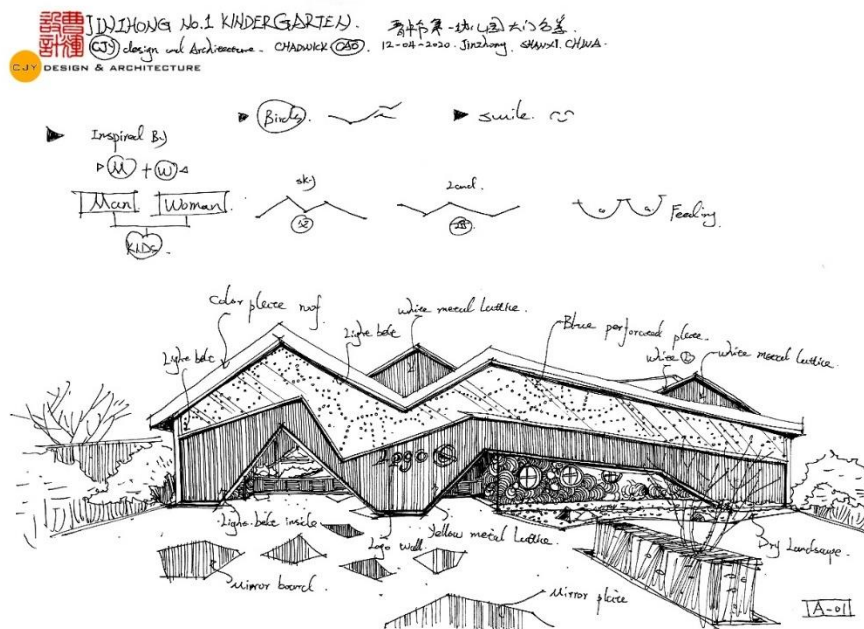 曹運
設計
JINZHONG No.1 KINDERGARTEN.
晋中市第一幼儿园大门方案
CJY design and Architecture. CHADWICK CAO. 12-04-2020. Jinzhong. SHANXI. CHINA.
CJY DESIGN & ARCHITECTURE
Inspired By
Birds.
smile.
M + W
Man
Woman
KIDS.
sky
Land.
Feeling
Color plate roof.
white metal lattice
Light belt
Light belt
Blue perforated plate.
white
white metal lattice.
Logo
Light belt inside
Logo wall.
Yellow metal lattice.
Dry Landscape.
Mirror board.
Mirror plate
A-01